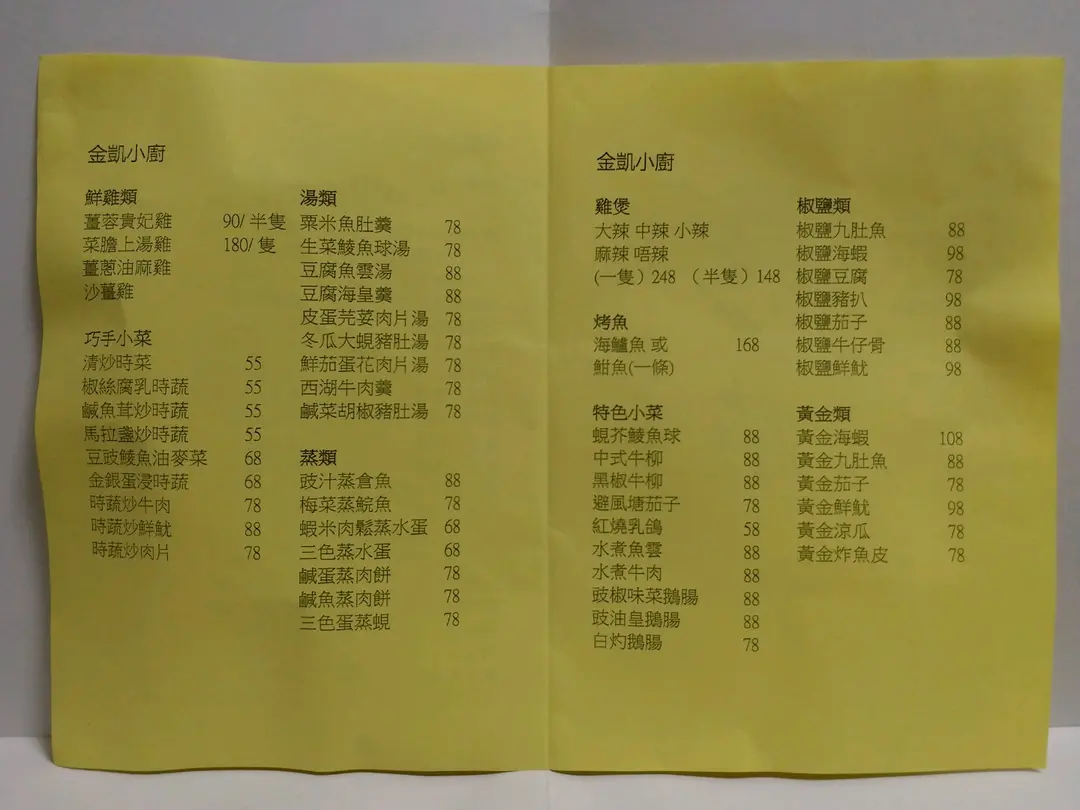 金凱小廚
鮮雞類
薑蓉貴妃雞 90/ 半隻
菜膽上湯雞 180/ 隻
薑蔥油麻雞
沙薑雞
巧手小菜
清炒時菜 55
椒絲腐乳時蔬 55
鹹魚茸炒時蔬 55
馬拉盞炒時蔬 55
豆豉鯪魚油麥菜 68
金銀蛋浸時蔬 68
時蔬炒牛肉 78
時蔬炒鮮魷 88
時蔬炒肉片 78
湯類
粟米魚肚羹 78
生菜鯪魚球湯 78
豆腐魚雲湯 88
豆腐海皇羹 88
皮蛋芫荽肉片湯 78
冬瓜大蜆豬肚湯 78
鮮茄蛋花肉片湯 78
西湖牛肉羹 78
鹹菜胡椒豬肚湯 78
蒸類
豉汁蒸倉魚 88
梅菜蒸鯇魚 78
蝦米肉鬆蒸水蛋 68
三色蒸水蛋 68
鹹蛋蒸肉餅 78
鹹魚蒸肉餅 78
三色蛋蒸蜆 78
金凱小廚
雞煲
大辣 中辣 小辣
麻辣 唔辣
(一隻）248 （半隻）148
烤魚
海鱸魚 或 168
鮙魚(一條)
特色小菜
蜆芥鯪魚球 88
中式牛柳 88
黑椒牛柳 88
避風塘茄子 78
紅燒乳鴿 58
水煮魚雲 88
水煮牛肉 88
豉椒味菜鵝腸 88
豉油皇鵝腸 88
白灼鵝腸 78
椒鹽類
椒鹽九肚魚 88
椒鹽海蝦 98
椒鹽豆腐 78
椒鹽豬扒 98
椒鹽茄子 88
椒鹽牛仔骨 88
椒鹽鮮魷 98
黃金類
黃金海蝦 108
黃金九肚魚 88
黃金茄子 78
黃金鮮魷 98
黃金涼瓜 78
黃金炸魚皮 78